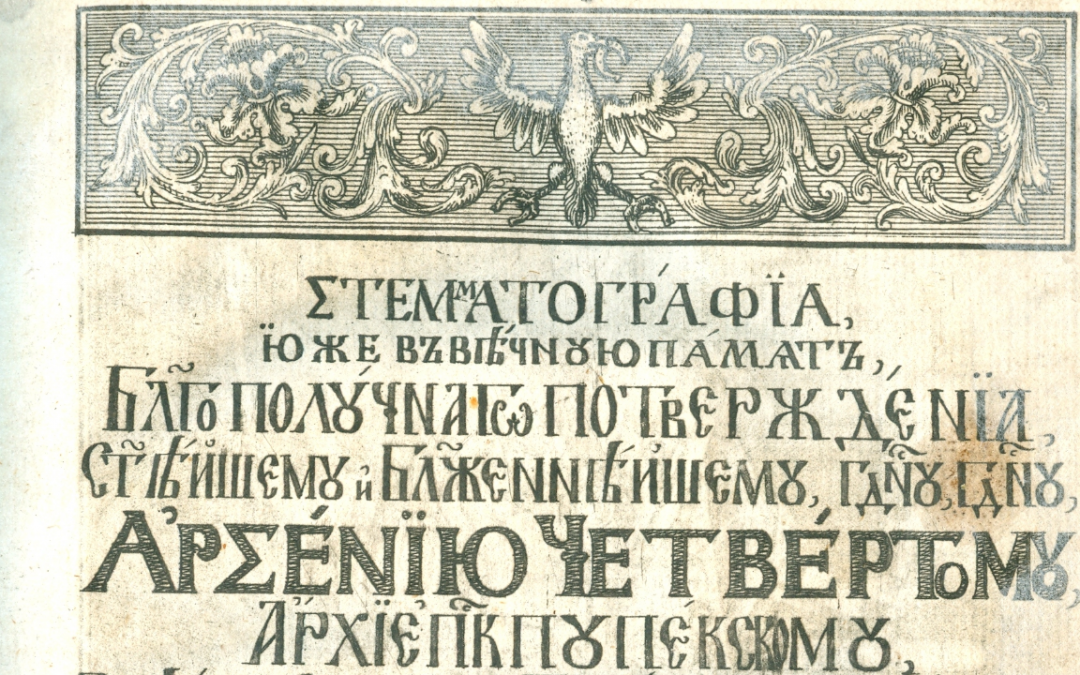 ΣТЕМᲅАТОГРА́ФЇА,
Ї҆Ю ЖЕ ВЪ ВѢ́ЧНꙊЮ ПА́МѦТЪ,
БЛ҃ГОПОЛꙊ́ЧНАГѠ ПОТВЕРЖДЕ́НЇѦ,
СТ҃Ѣ́ЙШЕМꙊ И҆ БЛ҃ЖЕННѢ́ЙШЕМꙊ, ГДⷭ҇НꙊ, ГДⷭ҇НꙊ,
А҆РΣЕ́НЇЮ ЧЕТВЕ́РТОМꙊ,
А҆РХЇЕП҃КПꙊ ПЕ́КСКОМꙊ,